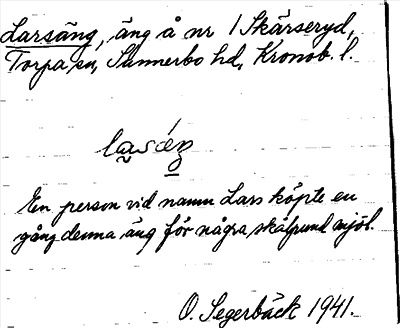 Larsäng, äng å nr 1 Skärseryd,
Torpa sn, Sunnerbo hd, Kronob. l.
En person vid namn Lars köpte en
gång denna äng för några skålpund mjöl.
O. Segerbäck 1941.